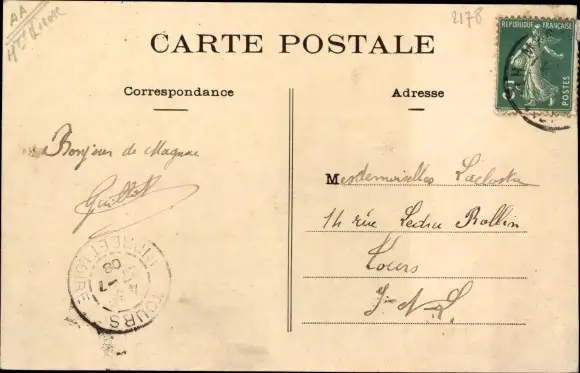 AA
Hte
2178
REPUBLIQUE FRANÇAISE
POSTES
CARTE POSTALE
Correspondance
Adresse
Bonjour de Magnac
Guillot
Mesdemoiselles
14 rue Ledru Rollin
Tours
I-et-L
TOURS
INDRE ET LOIRE
08